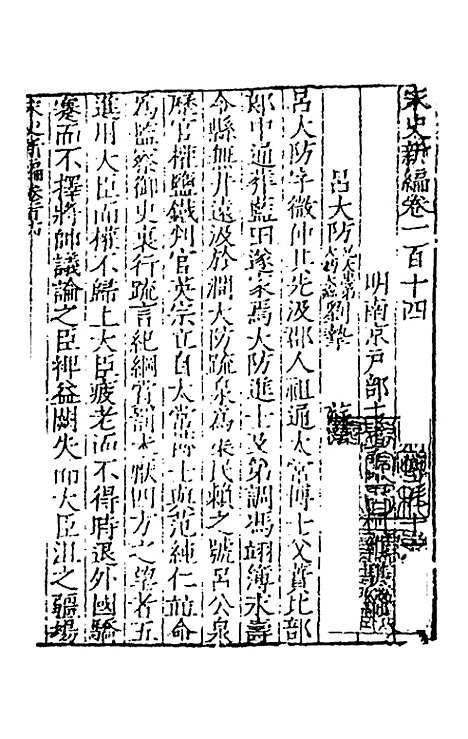 宋史新編卷一百十四
明南京戶部主
呂大防 劉摯 蘇
呂大防字微仲其先汲郡人祖通太常博士父蕡比部
郎中通葬藍田遂家焉大防進士及第調馮翊簿永壽
令縣無井遠汲於澗大防疏泉為渠民賴之號呂公泉
歷官權鹽鐵判官英宗立自太常博士與范純仁並命
為監察御史裏行疏言紀綱賞罰未厭四方之望者五
進用大臣而權不歸上大臣疲老而不得時退外國驕
蹇而不擇將帥議論之臣裨益闕失而大臣沮之疆埸
宋史新編卷百十四